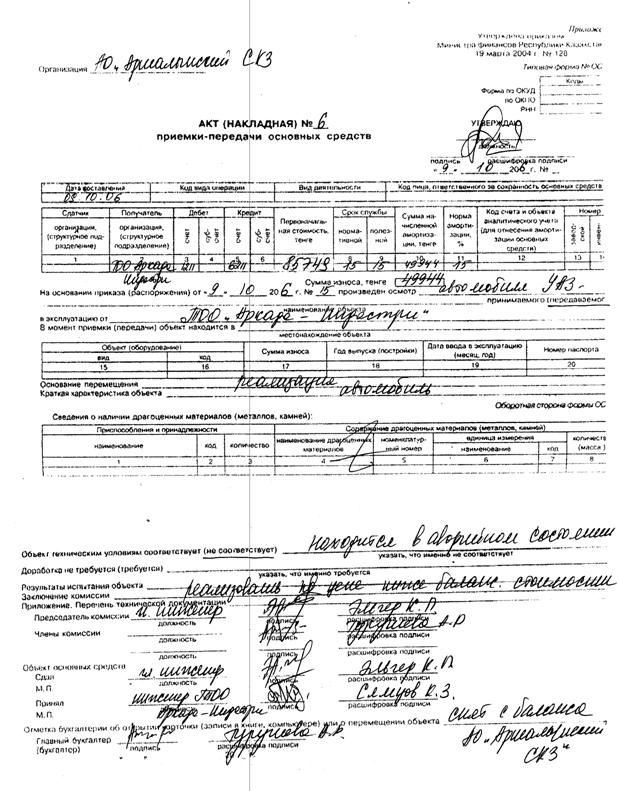 Приложе
Утверждена приказом
Министра финансов Республики Казахстан
19 марта 2004 г. № 128
Типовая форма № ОС
Организация АО „ СКЗ
Коды
Форма по ОКУД
по ОКПО
РНН
АКТ (НАКЛАДНАЯ) № 6
приемки-передачи основных средств
УТВЕРЖДАЮ
должность
подпись расшифровка подписи
" 9 " 10 2006 г. №
Дата составления Код вида операции Вид деятельности Код лица, ответственного за сохранность основных средств
09.10.06
Сдатчик Получатель Дебет Кредит Первоначальная стоимость, тенге Срок службы Сумма начисленной амортизации, тенге Норма амортизации, % Код счета и объекта аналитического учета (для отнесения амортизации основных средств) Номер
организация, (структурное подразделение) организация, (структурное подразделение) счет субсчет счет субсчет нормативной полезной заводской инвен
1 2 3 4 5 6 7 8 9 10 11 12 13
ТОО 85749 15 15 49944 15
Сумма износа, тенге 49944
На основании приказа (распоряжения) от " 9 " 10 2006 г. № 15 произведен осмотр автомобиль УАЗ-
наименование объекта принимаемого (передаваемог
в эксплуатацию от ТОО „
В момент приемки (передачи) объект находится в
местонахождение объекта
Объект (оборудование) Сумма износа Год выпуска (постройки) Дата ввода в эксплуатацию (месяц, год) Номер паспорта
вид код
15 16 17 18 19 20
Основание перемещения реализация
Краткая характеристика объекта автомобиль
Оборотная сторона формы ОС
Сведения о наличии драгоценных материалов (металлов, камней):
Приспособления и принадлежности Содержание драгоценных материалов (металлов, камней)
наименование код количество наименование драгоценных материалов номенклатурный номер единица измерения количеств (масса)
наименование код
1 2 3 4 5 6 7 8
Объект техническим условиям соответствует (не соответствует) находится в аварийном состоянии
указать, что именно не соответствует
Доработка не требуется (требуется)
указать, что именно требуется
Результаты испытания объекта
Заключение комиссии реализовать по цене ниже баланс. стоимости
Приложение. Перечень технической документации
Председатель комиссии инженер Эльгер К.П.
должность подпись расшифровка подписи
Члены комиссии А.Р
должность подпись расшифровка подписи
должность подпись расшифровка подписи
Объект основных средств
Сдал инженер Эльгер К.П
должность подпись расшифровка подписи
М.П.
Принял инженер ТОО К.З.
должность подпись расшифровка подписи
М.П.
Отметка бухгалтерии об открытии карточки (записи в книге, компьютере) или о перемещении объекта снят с баланса
АО „ СКЗ"
Главный бухгалтер (бухгалтер) подпись расшифровка подписи